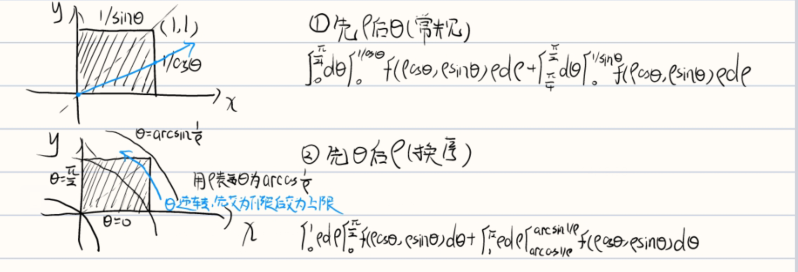 y 1/sinθ (1,1)
1/cosθ
x
①先ρ后θ(常规)
∫₀^{π/4}dθ∫₀^{1/cosθ} f(ρcosθ,ρsinθ)ρdρ+∫_{π/4}^{π/2}dθ∫₀^{1/sinθ} f(ρcosθ,ρsinθ)ρdρ
y θ=arcsin1/ρ
θ=π/2
用ρ表示θ为arccos1/ρ
θ逆转,先交为下限后交为上限
θ=0
x
②先θ后ρ(换序)
∫₀¹ρdρ∫₀^{π/2}f(ρcosθ,ρsinθ)dθ+∫₁^{√2}ρdρ∫_{arccos1/ρ}^{arcsin1/ρ}f(ρcosθ,ρsinθ)dθ